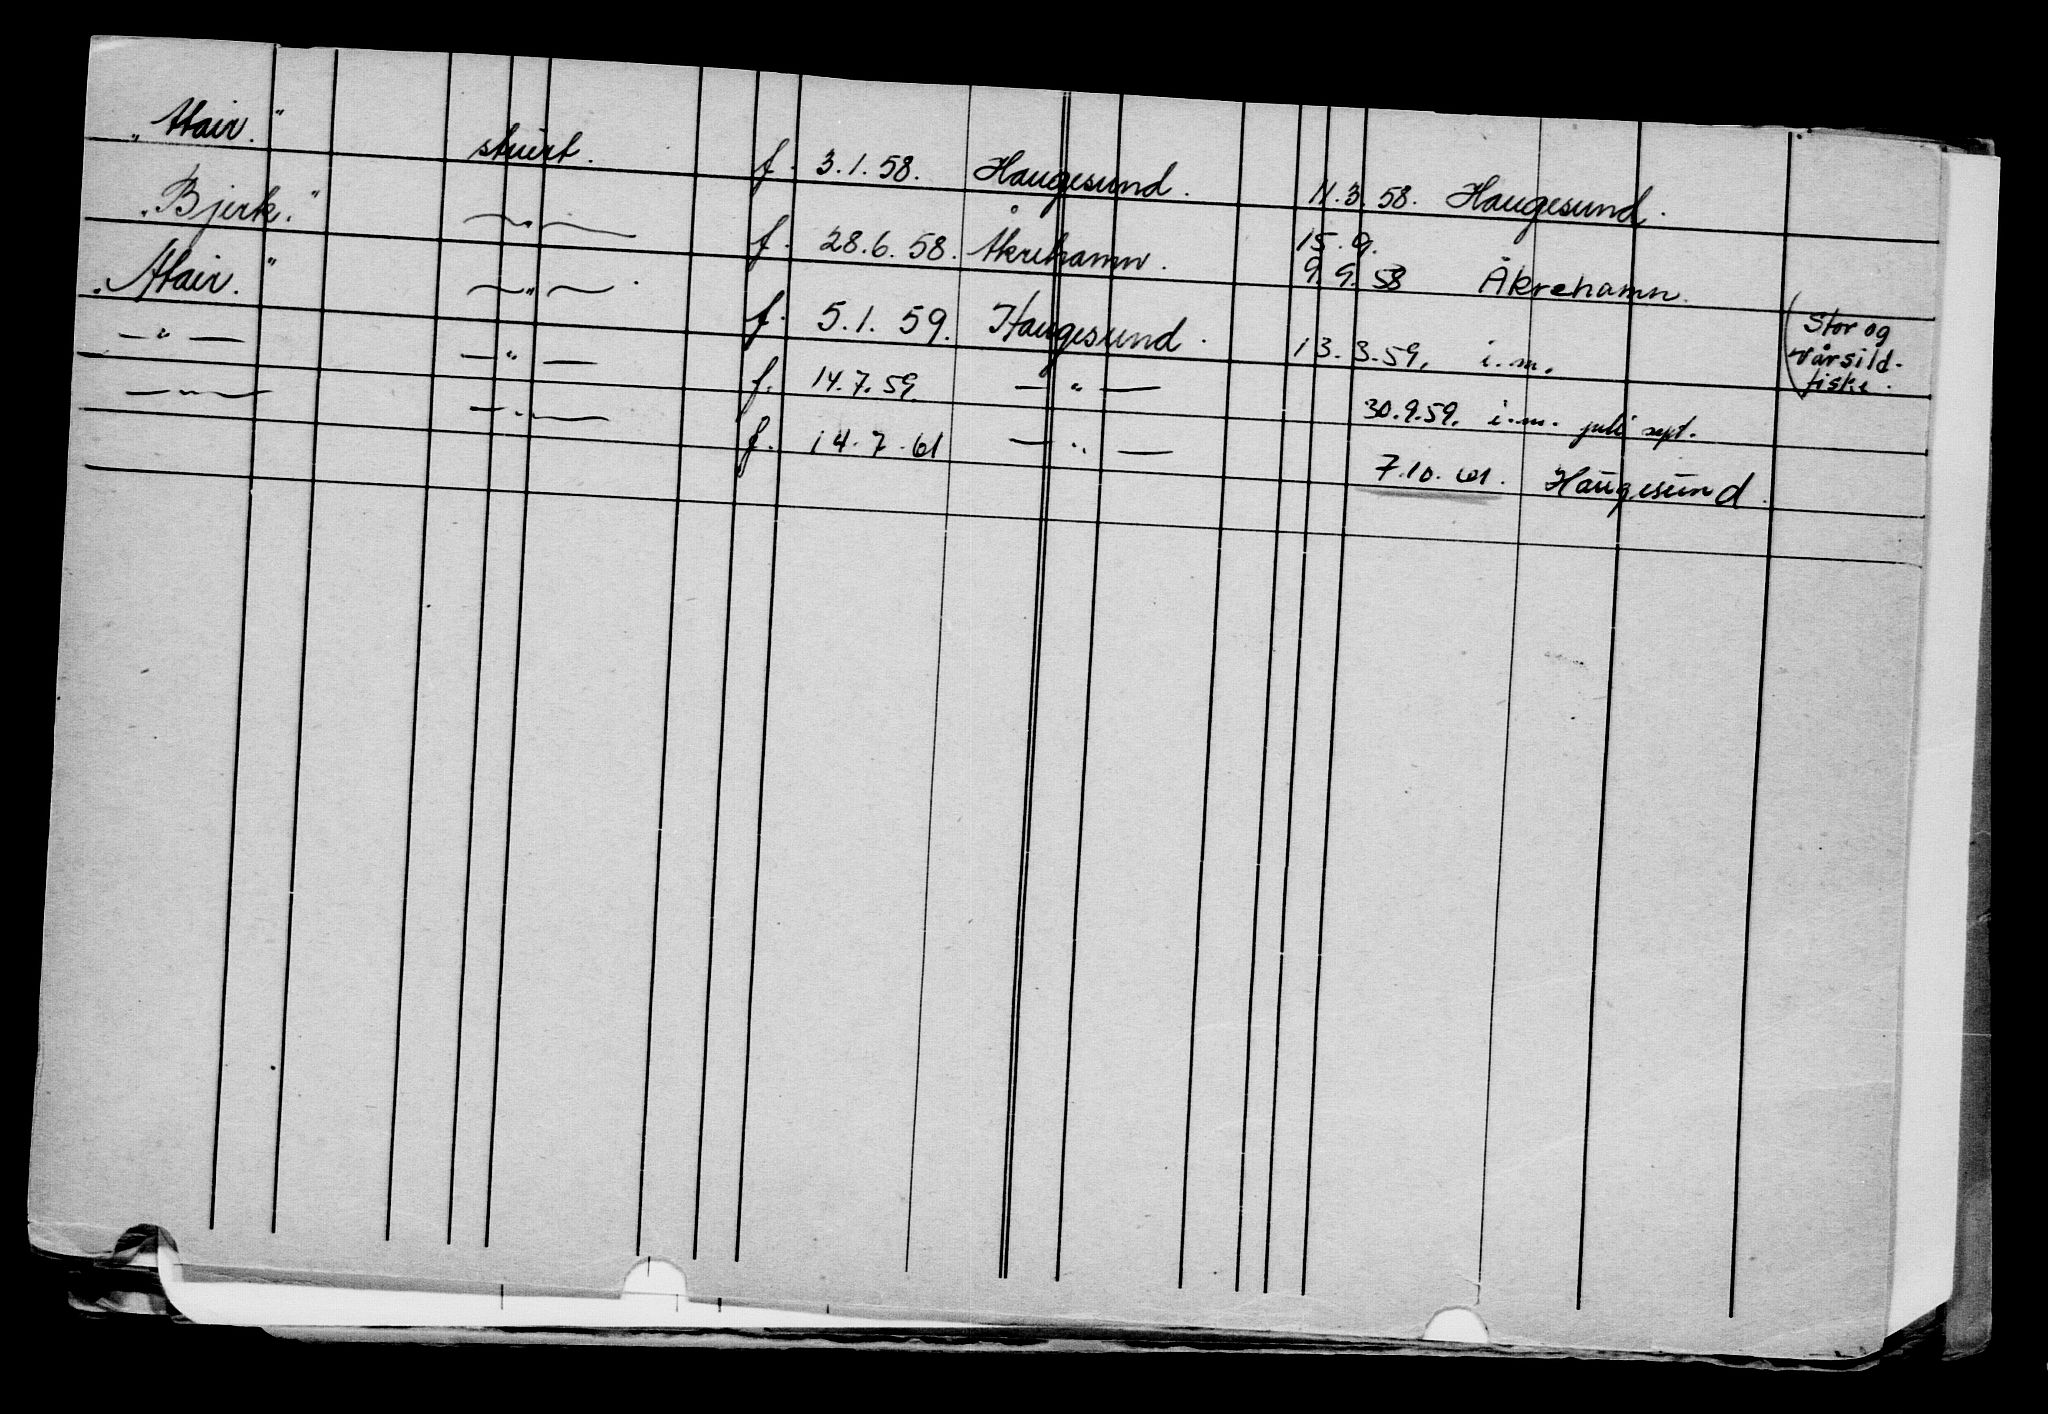 „Atair." stuert. f. 3.1.58. Haugesund. 11.3.58. Haugesund.
„Bjerk." —„— f. 28.6.58. Åkrehamn. 15.9.
9.9.58 Åkrehamn.
„Atair." —„— . f. 5.1.59. Haugesund. 13.3.59. i.m. (Stor og
vårsild-
fiske.
—„— —„— f. 14.7.59. —„— 30.9.59. i.m. juli sept.
—„— —„— f. 14.7.61 —„— 7.10.61. Haugesund.